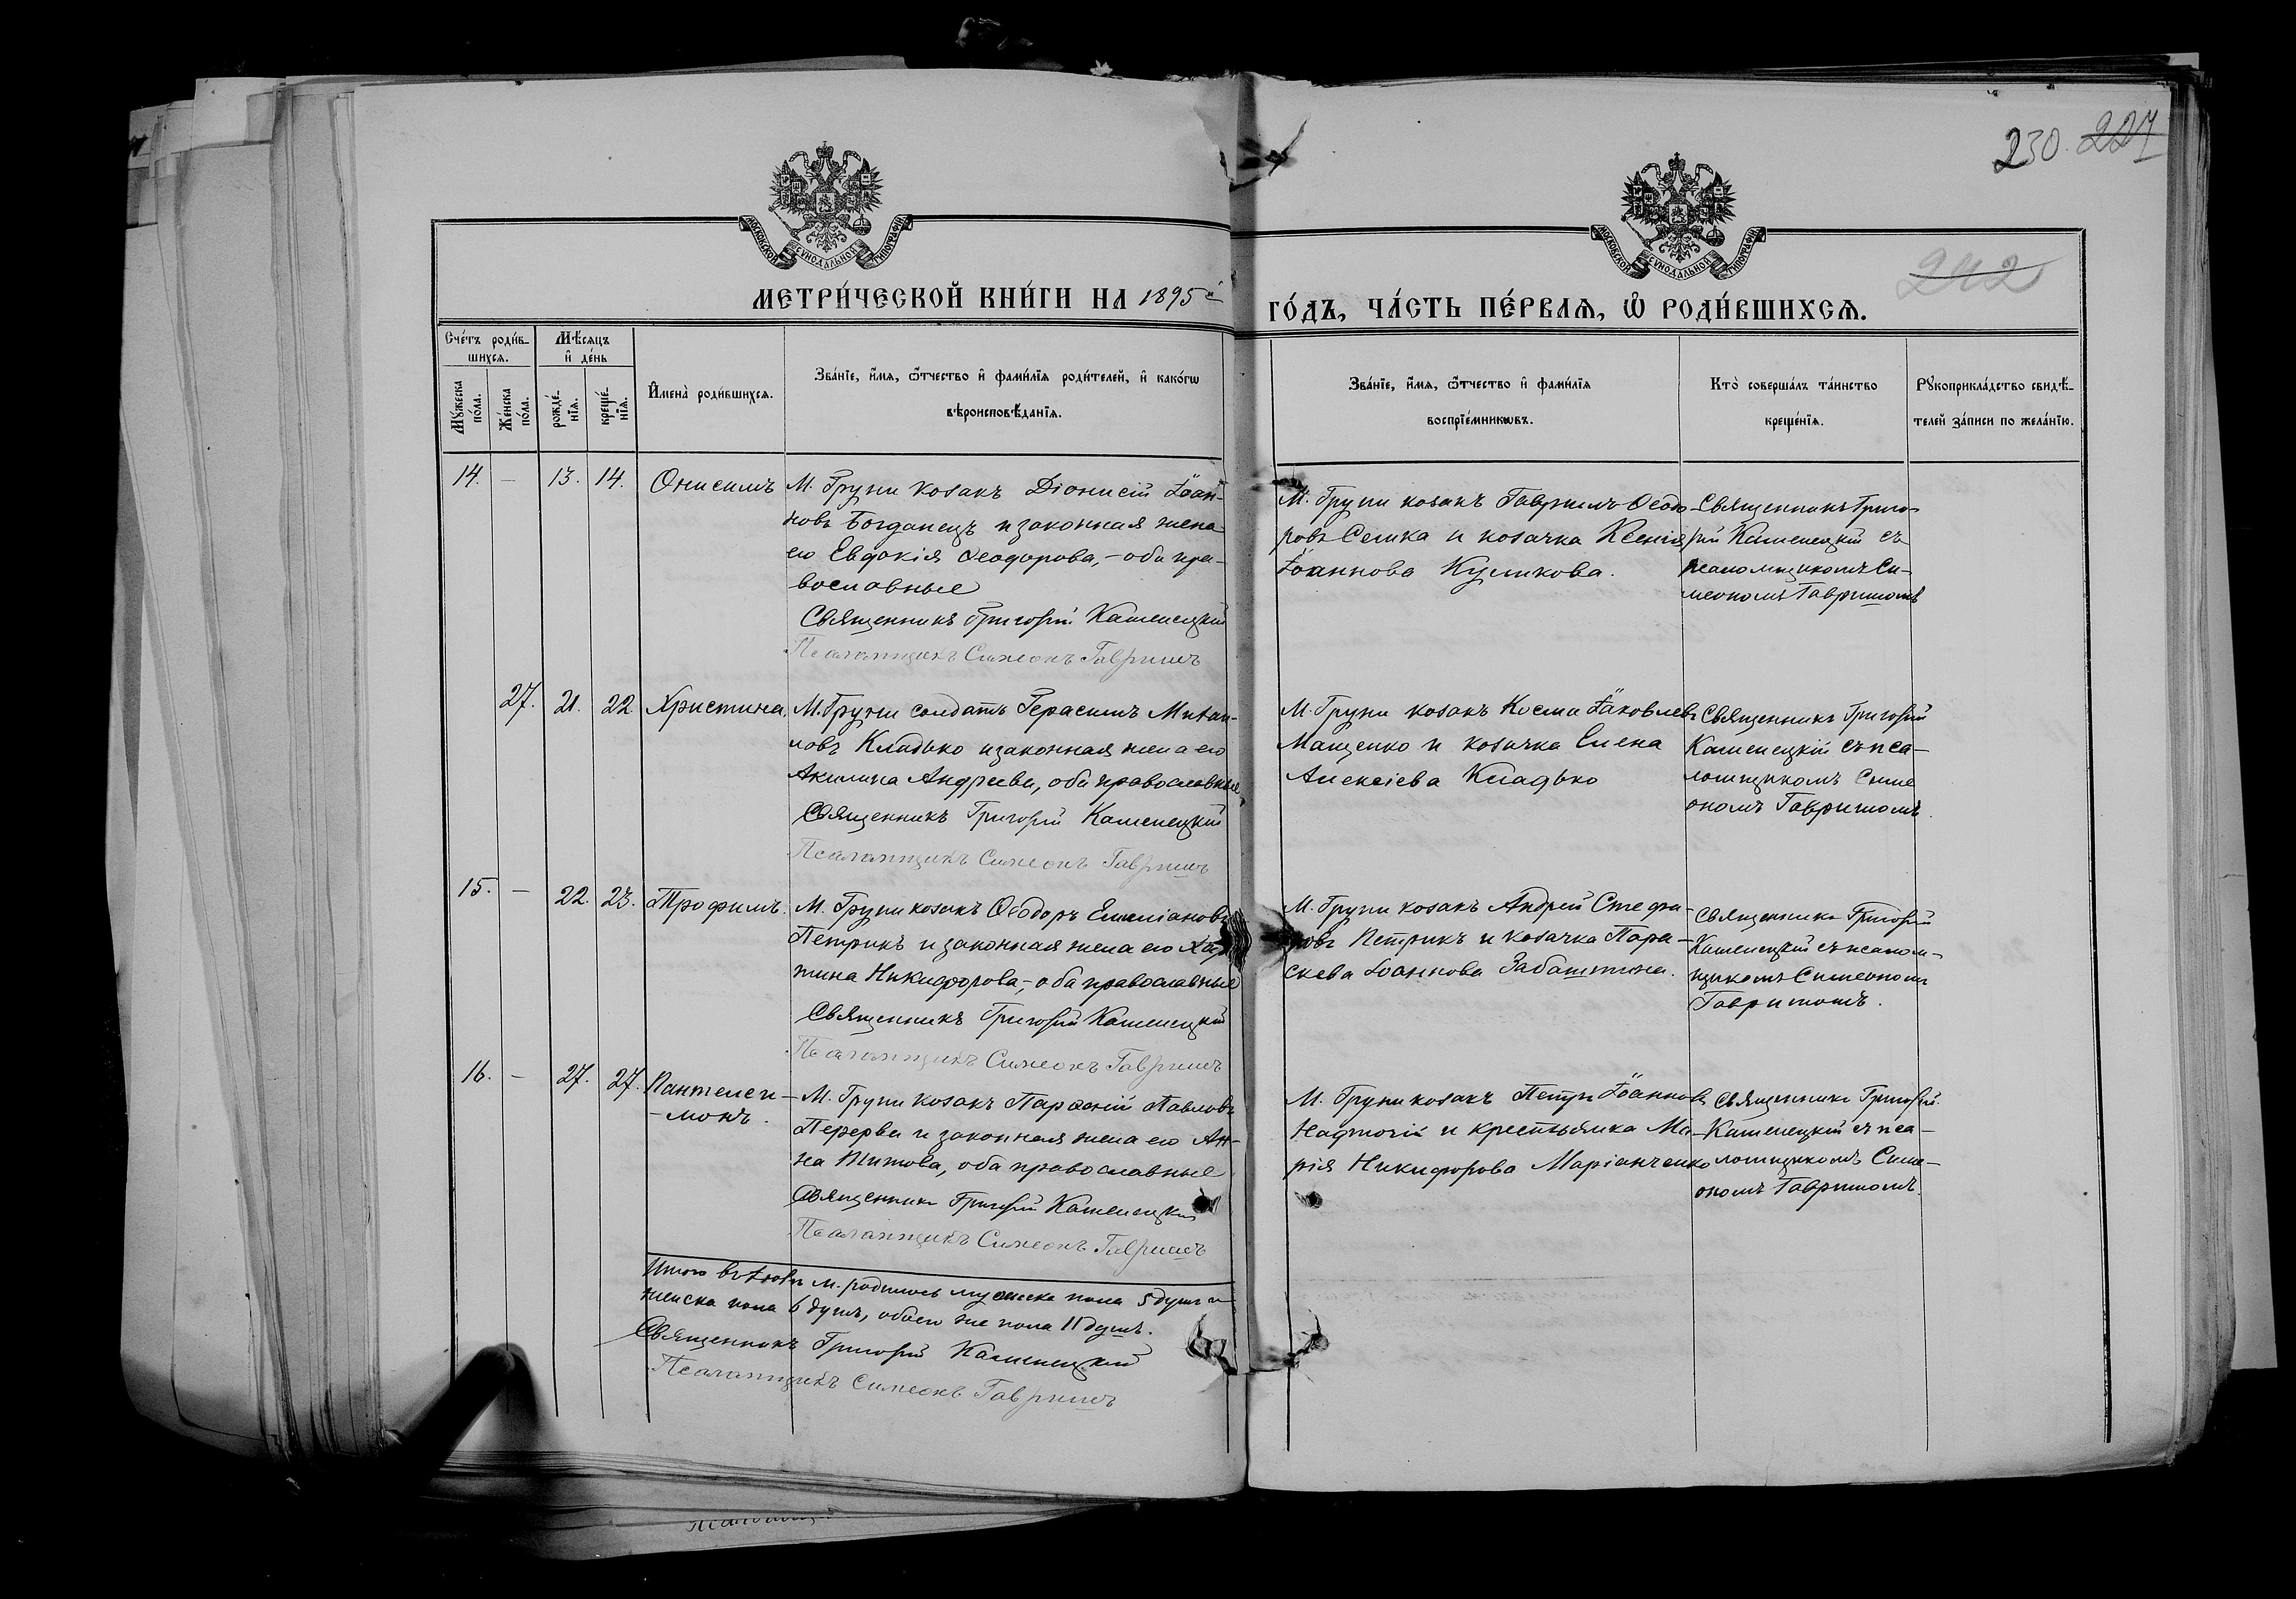 230. 227
МОСКОВСКОЙ СѴНОДАЛЬНОЙ ТИПОГРАФІИ
МОСКОВСКОЙ СѴНОДАЛЬНОЙ ТИПОГРАФІИ
242
МЕТРИ́ЧЕСКОЙ КНИ́ГИ НА 1895й
ГО́ДЪ, ЧА́СТЬ ПЕ́РВАѦ, Ѽ РОДИ́ВШИХСѦ.
Сче́тъ роди́в-
шихсѧ.
Мꙋ́жеска по́ла.
Же́нска по́ла.
Мѣ́сѧцъ
и҆ де́нь
рожде́-
нїѧ.
креще́-
нїѧ.
И҆мена̀ роди́вшихсѧ.
Зва́нїе, и҆́мѧ, ѻ҆́тчество и҆ фами́лїѧ роди́телей, и҆ како́гѡ
вѣроисповѣ́данїѧ.
Зва́нїе, и҆́мѧ, ѻ҆́тчество и҆ фами́лїѧ
воспрїе́мникѡвъ.
Кто̀ соверша́лъ та́инство
креще́нїѧ.
Рꙋкоприкла́дство свидѣ́-
телей за́писи по жела́нїю.
14. — 13. 14. Онисимъ
М. Груни козакъ Діонисій Іоан-
новъ Богданецъ и законная жена
его Евдокія Ѳеодорова, – оба пра-
вославные
Священникъ Григорій Каменецкій
Псаломщикъ Симеонъ Гавришъ
М. Груни козакъ Гавриилъ Ѳеодо-
ровъ Семка и козачка Ксенія
Іоаннова Куликова.
Священникъ Григо-
рій Каменецкій съ
псаломщикомъ Си-
меономъ Гавришомъ
27. 21. 22. Христина,
М. Груни солдатъ Герасимъ Михаи-
ловъ Кладько и законная жена его
Акилина Андреева, оба православные,
Священникъ Григорій Каменецкій
Псаломщикъ Симеонъ Гавришъ
М. Груни козакъ Косма Іаковлевъ
Мащенко и козачка Елена
Алексіева Кладько
Священникъ Григорій
Каменецкій съ пса-
ломщикомъ Симе
ономъ Гавришомъ.
15. — 22. 23. Трофимъ.
М. Груни козакъ Ѳеодоръ Емиліановъ
Петрикъ и законная жена его Хар
тина Никифорова, – оба православные
Священникъ Григорій Каменецкій
Псаломщикъ Симеонъ Гавришъ
М. Груни козакъ Андрей Стефа-
новъ Петрикъ и козачка Пара-
скева Іоаннова Забаштина.
Священникъ Григорій
Каменецкій съ псалом-
щикомъ Симеономъ
Гавришомъ.
16. — 27. 27. Пантелеи-
-монъ.
М. Груни козакъ Парѳеній Павловъ
Перерва и законная жена его Ан-
на Титова, оба православные
Священникъ Григорій Каменецкій
Псаломщикъ Симеонъ Гавришъ
М. Груни козакъ Петръ Іоанновъ
и крестьянка Ма-
рія Никифорова Маріанченко
Священникъ Григорій
Каменецкій съ пса-
ломщикомъ Симе-
ономъ Гавришомъ.
Итого въ Іюлѣ м. родилось мужеска пола 5 душъ и
женска пола 6 душъ, обоего же пола 11 душъ.
Священникъ Григорій Каменецкій
Псаломщикъ Симеонъ Гавришъ